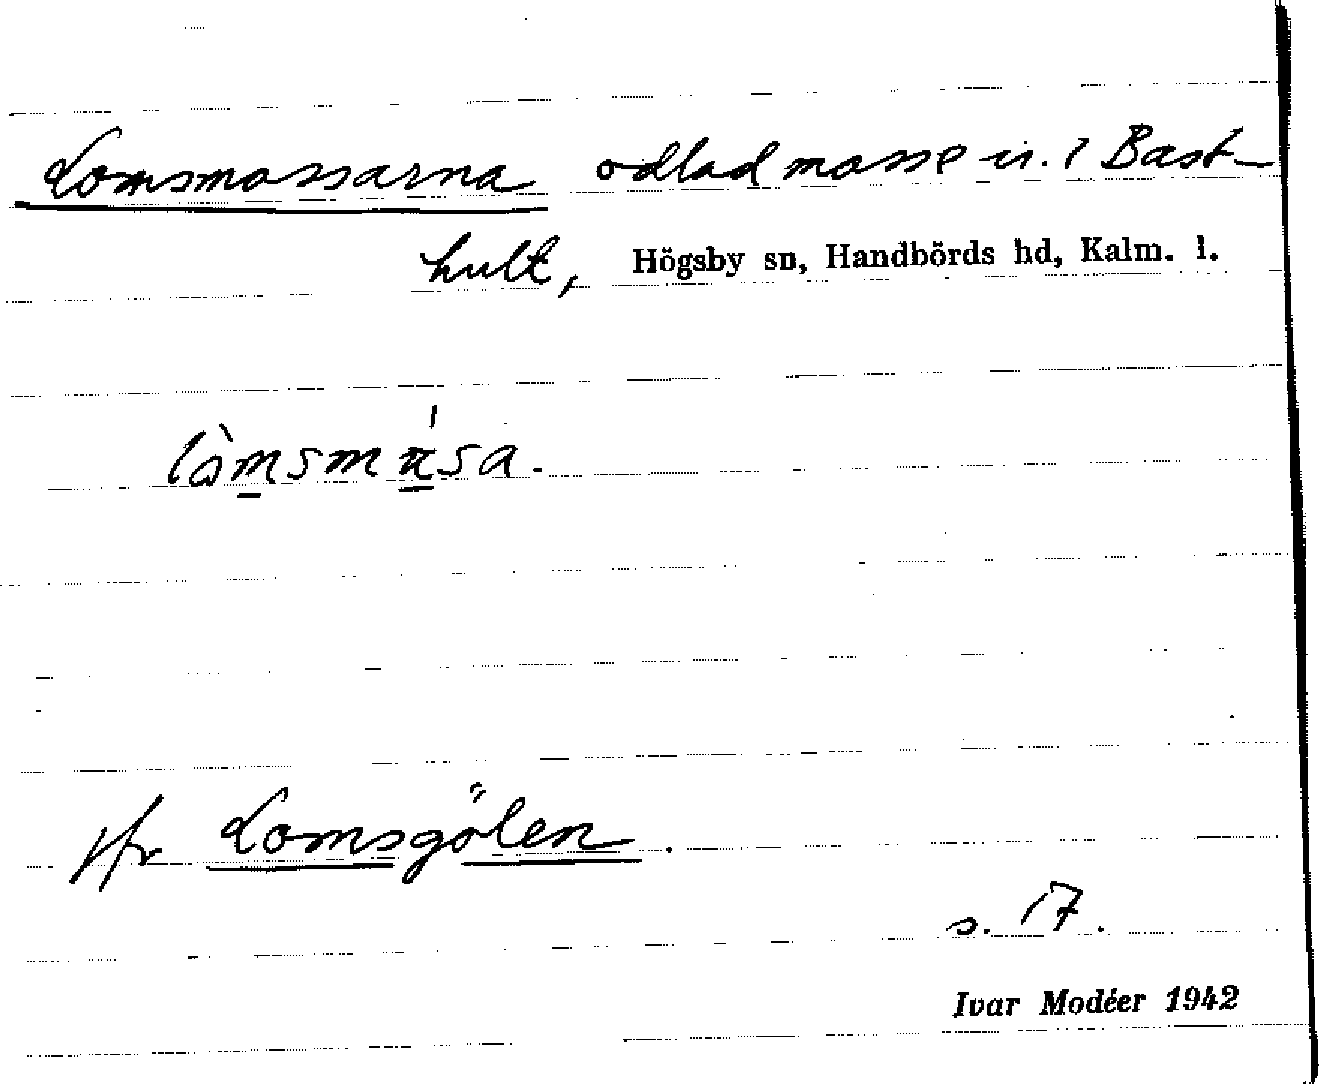 Lomsmossarna odlad mosse n. i Bast-
hult, Högsby sn, Handbörds hd, Kalm. l.
jfr Lomsgölen.
s. 17.
Ivar Modéer 1942